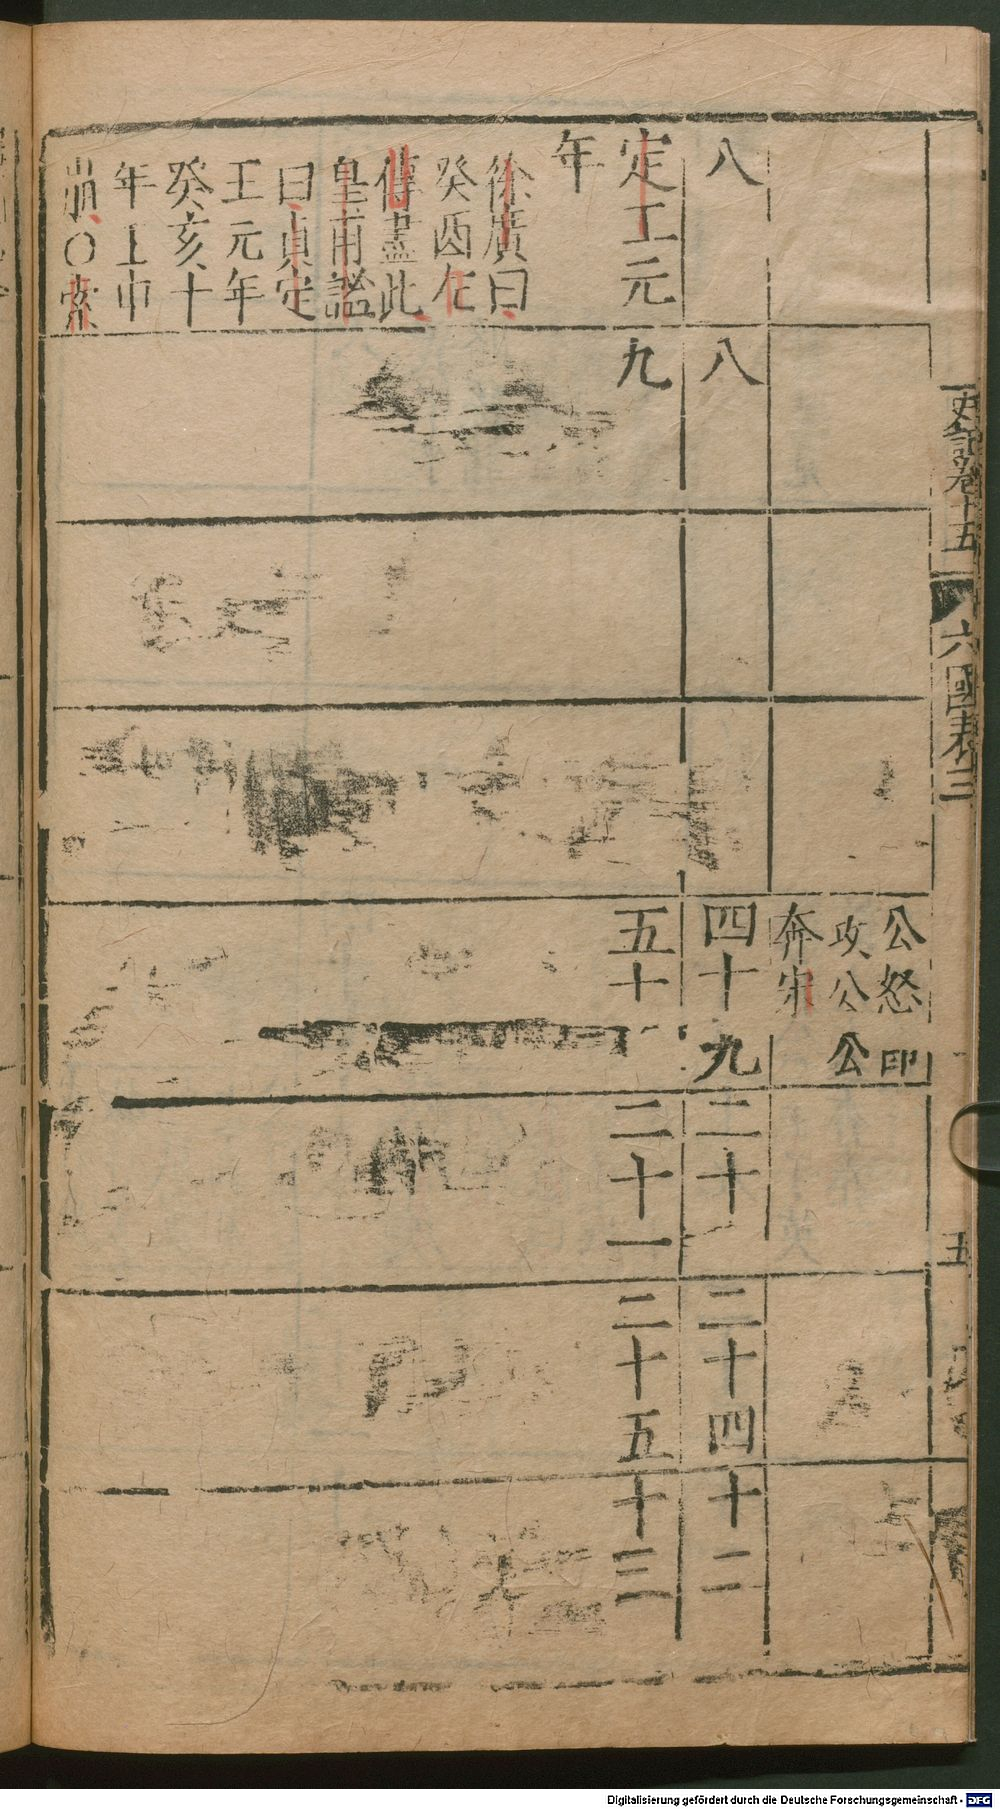 史記卷十五
六國表三
五
公怒
攻公
奔宋
印
公
八
八
四十九
二十
二十四
十二
定王元
年
九
五十
二十一
二十五
十三
徐廣曰
癸酉左
傳盡此
皇甫謐
曰貞定
王元年
癸亥十
年壬申
崩〇索
Digitalisierung gefördert durch die Deutsche Forschungsgemeinschaft - DFG